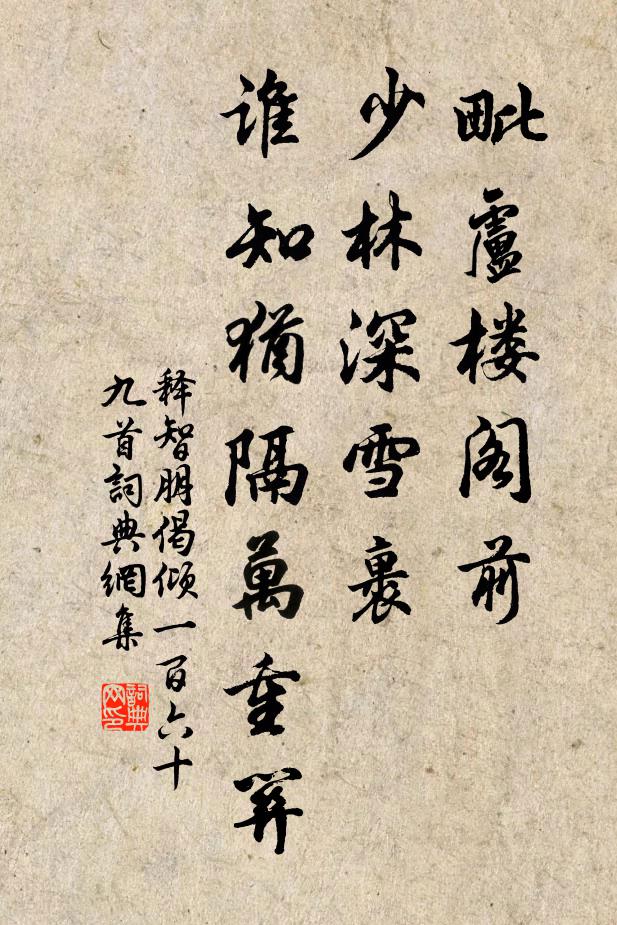 毗盧楼阁前
少林深雪裹
誰知猶隔萬重關
释智朋偈倾一百六十
九首詞典網集
詞典网印